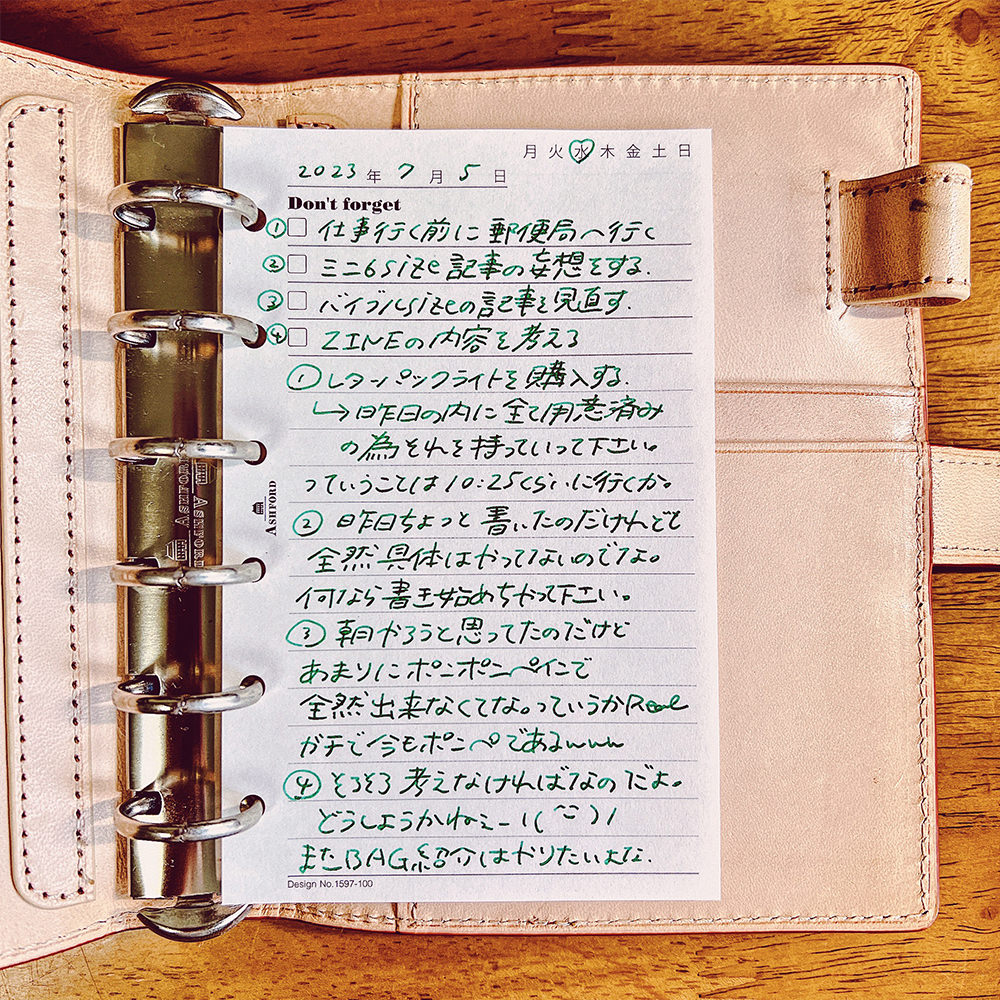 月 火 水 木 金 土 日
2023 年 7 月 5 日
Don't forget
① 仕事行く前に郵便局へ行く
② ミニ6sizeの記事の妄想をする.
③ バイブルsizeの記事を見直す.
④ ZINEの内容を考える
① レターパックライトを購入する.
↳昨日の内に全て用意済み
の為それを持っていって下さい。
っていうことは10:25くらいに行くか。
② 昨日ちょっと書いたのだけれども
全然具体はやってないのでな。
何なら書き始めちゃって下さい。
③ 朝やろうと思ってたのだけど
あまりにポンポンペインで
全然出来なくてな。っていうかReal
ガチで今もポンペであるwww
④ そろそろ考えなければなのだよ。
どうしようかねぇー!(
また BAG紹介はやりたいよな.
ASHFORD
ASHFORD
Design No.1597-100